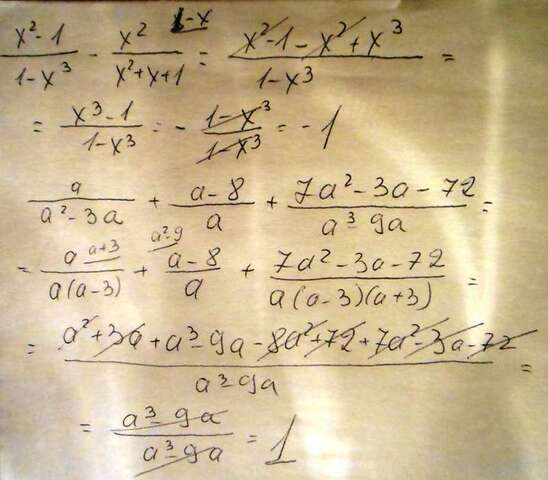 (x²-1)/(1-x³) - x²/(x²+x+1) ^(1-x) = (x²-1-x²+x³)/(1-x³) =
= (x³-1)/(1-x³) = - (1-x³)/(1-x³) = -1
a/(a²-3a) + (a-8)/a + (7a²-3a-72)/(a³-9a) =
= a/(a(a-3)) ^(a+3) + (a-8)/a ^(a²-9) + (7a²-3a-72)/(a(a-3)(a+3)) =
= (a²+3a+a³-9a-8a²+72+7a²-3a-72)/(a³-9a) =
= (a³-9a)/(a³-9a) = 1